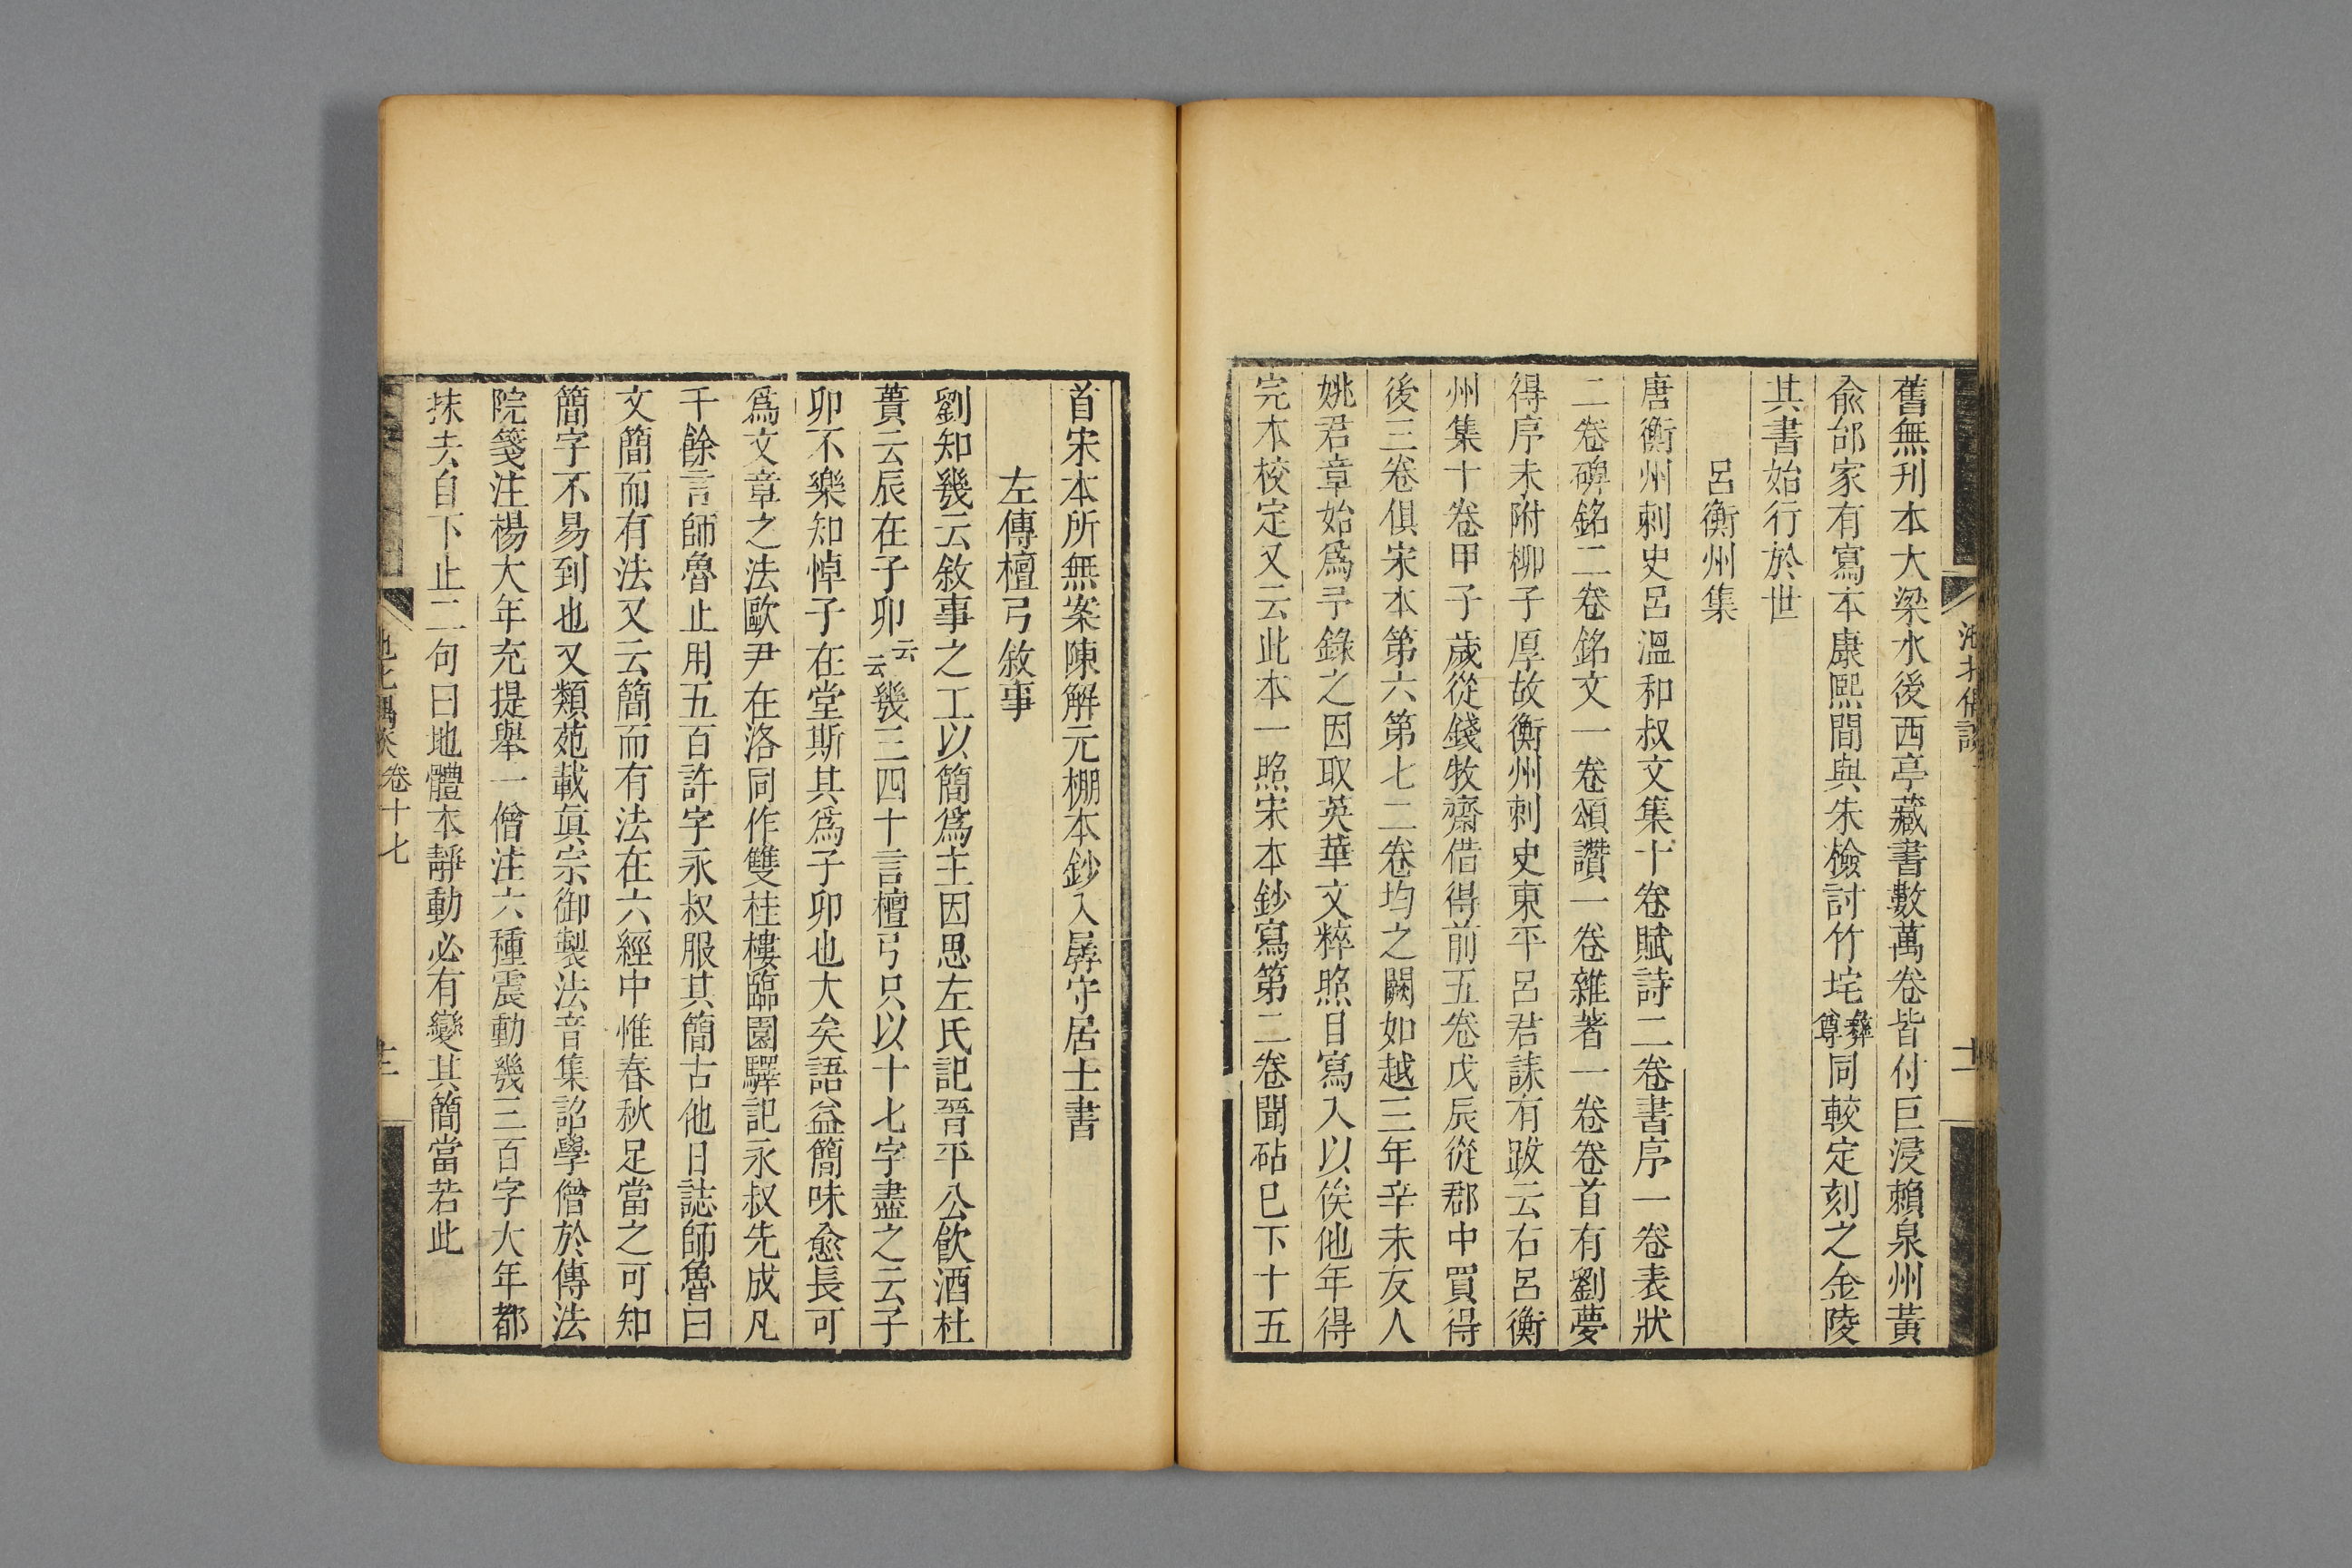 舊無刋本大梁水後西亭藏書數萬卷皆付巨浸賴泉州黃
兪邰家有寫本康熙間與朱檢討竹垞彝尊同較定刻之金陵
其書始行於世
呂衡州集
唐衡州刺史呂溫和叔文集十卷賦詩二卷書序一卷表狀
二卷碑銘二卷銘文一卷頌讚一卷雜著一卷卷首有劉夢
得序末附柳子厚故衡州刺史東平呂君誄有跋云右呂衡
州集十卷甲子歲從錢牧齋借得前五卷戊辰從郡中買得
後三卷俱宋本第六第七二卷均之闕如越三年辛未友人
姚君章始爲予錄之因取英華文粹照目寫入以俟他年得
完本校定又云此本一照宋本鈔寫第二卷聞砧已下十五
首宋本所無案陳解元棚本鈔入孱守居士書
左傳檀弓敘事
劉知幾云敘事之工以簡爲主因思左氏記晉平公飮酒杜
蕢云辰在子卯云云幾三四十言檀弓只以十七字盡之云子
卯不樂知悼子在堂斯其爲子卯也大矣語益簡味愈長可
爲文章之法歐尹在洛同作雙桂樓臨園驛記永叔先成凡
千餘言師魯止用五百許字永叔服其簡古他日誌師魯曰
文簡而有法又云簡而有法在六經中惟春秋足當之可知
簡字不易到也又類苑載眞宗御製法音集詔學僧於傳法
院箋注楊大年充提舉一僧注六種震動幾三百字大年都
抹去自下止二句曰地體本靜動必有變其簡當若此
池北偶談 卷十七
十二